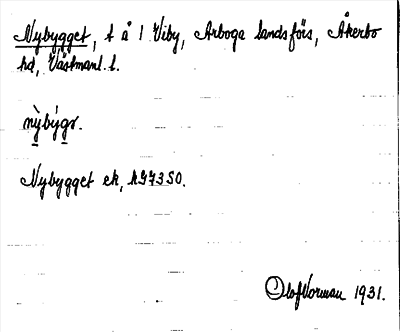 Nybygget, t å 1 Viby, Arboga landsförs, Åkerbo
hd, Västmanl. l.
nỳbýgr.
Nybygget ek, kG7350.
Olof Norman 1931.